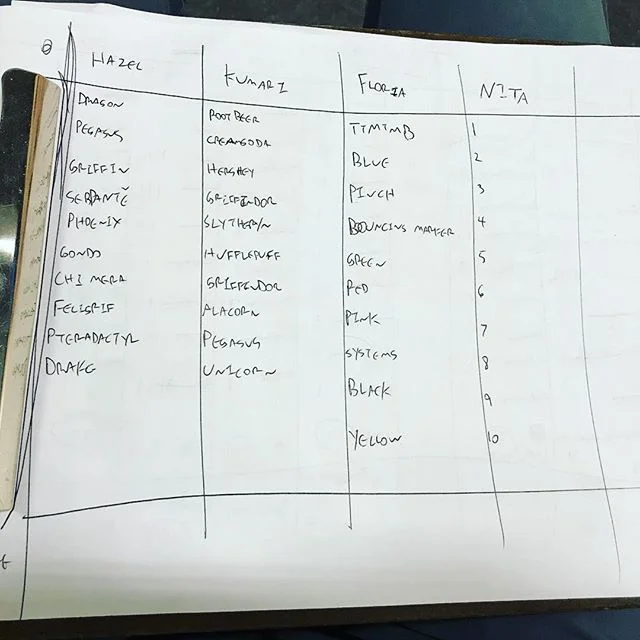 HAZEL KUMARI FLORIA NITA
DRAGON ROOTBEER TTMTMB 1
PEGASUS CREAMSODA BLUE 2
GRIFFIN HERSHEY PINCH 3
SERPANTĚ GRIFFINDOR BOUNCING MARKER 4
PHOENIX SLYTHERYN GREEN 5
GONDO HUFFLEPUFF RED 6
CHIMERA GRIFFENDOR PINK 7
FELIGRIF ALACORN SYSTEMS 8
PTERADACTYL PEGASUS BLACK 9
DRAKE UNICORN YELLOW 10